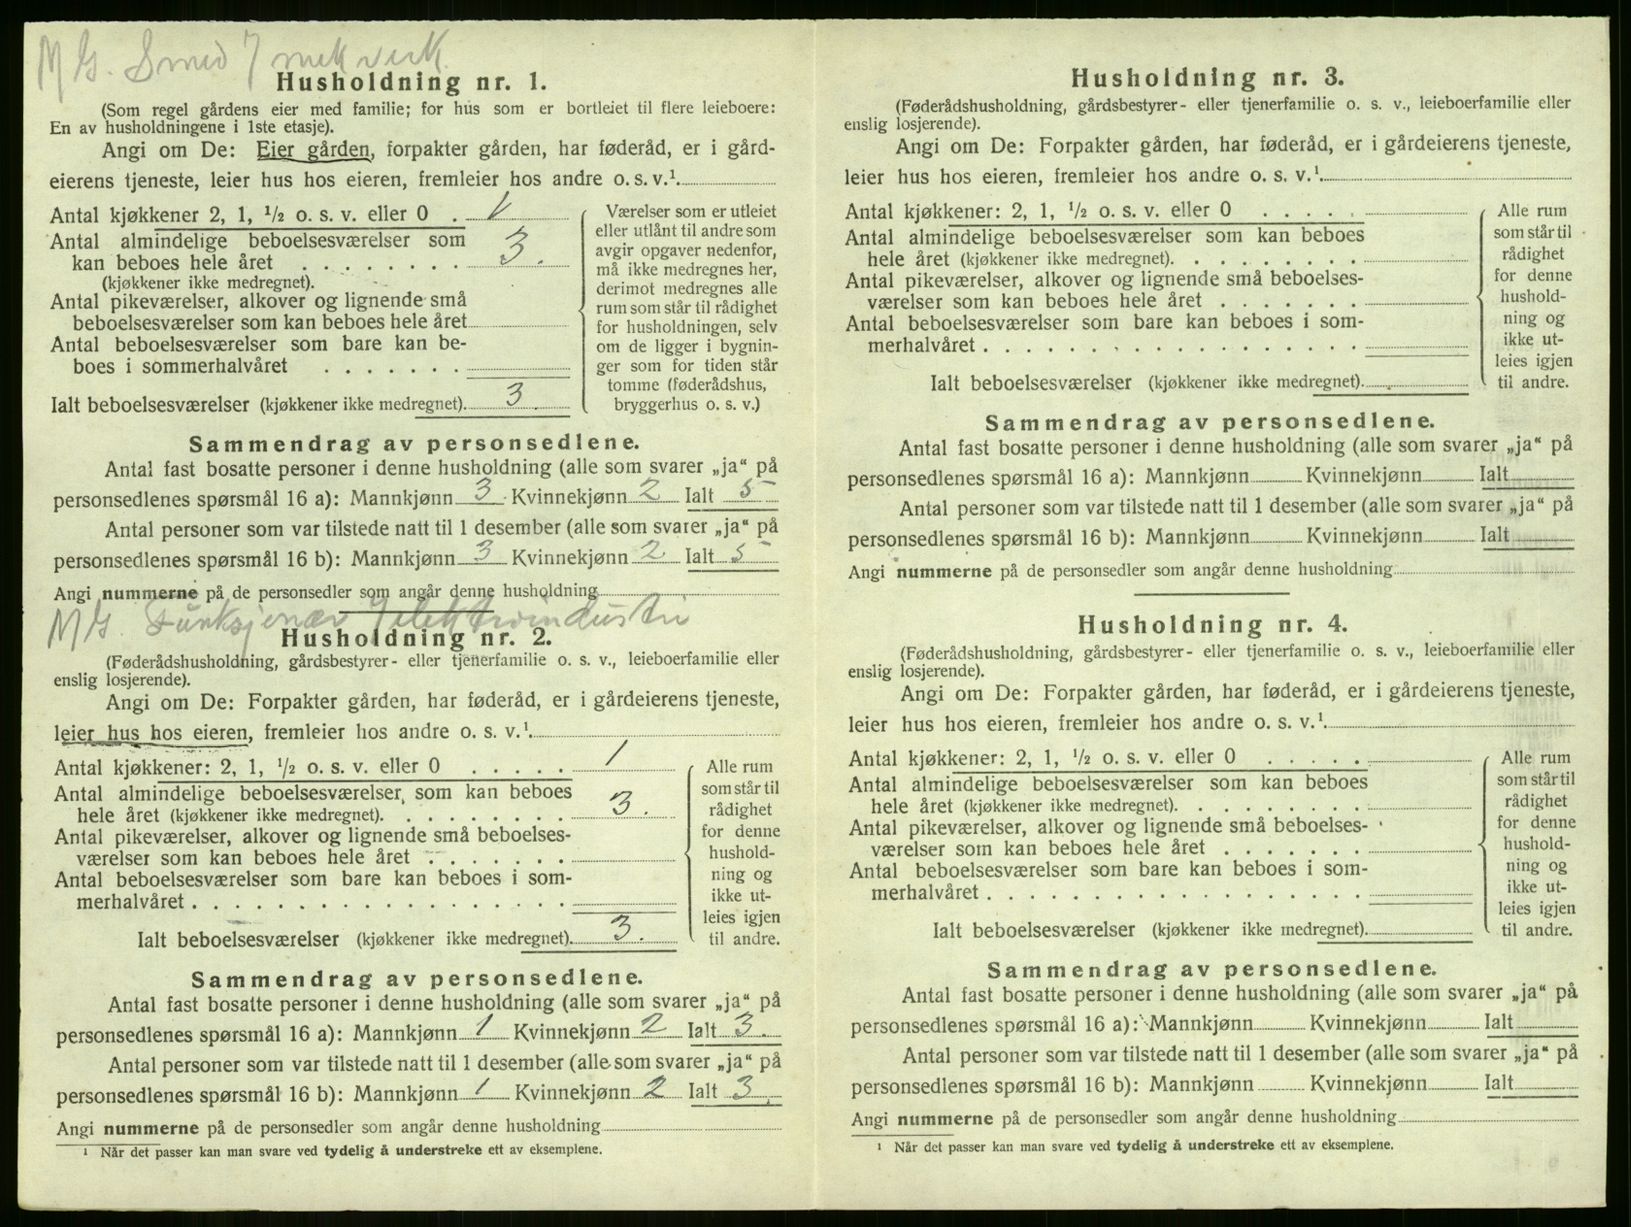 M G. Smed / mek verk.
Husholdning nr. 1.
(Som regel gårdens eier med familie; for hus som er bortleiet til flere leieboere:
En av husholdningene i 1ste etasje).
Angi om De: Eier gården, forpakter gården, har føderåd, er i gård-
eierens tjeneste, leier hus hos eieren, fremleier hos andre o. s. v.¹
Antal kjøkkener 2, 1, ½ o. s. v. eller 0 . 1
Antal almindelige beboelsesværelser som
kan beboes hele året . . . . . . . . 3.
(kjøkkener ikke medregnet).
Antal pikeværelser, alkover og lignende små
beboelsesværelser som kan beboes hele året
Antal beboelsesværelser som bare kan be-
boes i sommerhalvåret . . . . . . .
Ialt beboelsesværelser (kjøkkener ikke medregnet). 3.
Værelser som er utleiet
eller utlånt til andre som
avgir opgaver nedenfor,
må ikke medregnes her,
derimot medregnes alle
rum som står til rådighet
for husholdningen, selv
om de ligger i bygnin-
ger som for tiden står
tomme (føderådshus,
bryggerhus o. s. v.)
Sammendrag av personsedlene.
Antal fast bosatte personer i denne husholdning (alle som svarer „ja“ på
personsedlenes spørsmål 16 a): Mannkjønn 3 Kvinnekjønn 2 Ialt 5
Antal personer som var tilstede natt til 1 desember (alle som svarer „ja“ på
personsedlenes spørsmål 16 b): Mannkjønn 3 Kvinnekjønn 2 Ialt 5
Angi nummerne på de personsedler som angår denne husholdning
M G. Funksjonær / elektroindustri
Husholdning nr. 2.
(Føderådshusholdning, gårdsbestyrer- eller tjenerfamilie o. s. v., leieboerfamilie eller
enslig losjerende).
Angi om De: Forpakter gården, har føderåd, er i gårdeierens tjeneste,
leier hus hos eieren, fremleier hos andre o. s. v.¹
Antal kjøkkener: 2, 1, ½ o. s. v. eller 0 . . . . . 1
Antal almindelige beboelsesværelser som kan beboes
hele året (kjøkkener ikke medregnet). . . . . . . . . 3.
Antal pikeværelser, alkover og lignende små beboelses-
værelser som kan beboes hele året . . . . . . .
Antal beboelsesværelser som bare kan beboes i som-
merhalvåret . . . . . . . . . . . . . . . . . .
Ialt beboelsesværelser (kjøkkener ikke medregnet). 3.
Alle rum
som står til
rådighet
for denne
hushold-
ning og
ikke ut-
leies igjen
til andre.
Sammendrag av personsedlene.
Antal fast bosatte personer i denne husholdning (alle som svarer „ja“ på
personsedlenes spørsmål 16 a): Mannkjønn 1 Kvinnekjønn 2 Ialt 3.
Antal personer som var tilstede natt til 1 desember (alle som svarer „ja“ på
personsedlenes spørsmål 16 b): Mannkjønn 1 Kvinnekjønn 2 Ialt 3.
Angi nummerne på de personsedler som angår denne husholdning
¹ Når det passer kan man svare ved tydelig å understreke ett av eksemplene.
Husholdning nr. 3.
(Føderådshusholdning, gårdsbestyrer- eller tjenerfamilie o. s. v., leieboerfamilie eller
enslig losjerende).
Angi om De: Forpakter gården, har føderåd, er i gårdeierens tjeneste,
leier hus hos eieren, fremleier hos andre o. s. v.¹
Antal kjøkkener: 2, 1, ½ o. s. v. eller 0 . . . . .
Antal almindelige beboelsesværelser som kan beboes
hele året (kjøkkener ikke medregnet). . . . . . . . .
Antal pikeværelser, alkover og lignende små beboelses-
værelser som kan beboes hele året . . . . . . .
Antal beboelsesværelser som bare kan beboes i som-
merhalvåret . . . . . . . . . . . . . . . . . .
Ialt beboelsesværelser (kjøkkener ikke medregnet).
Alle rum
som står til
rådighet
for denne
hushold-
ning og
ikke ut-
leies igjen
til andre.
Sammendrag av personsedlene.
Antal fast bosatte personer i denne husholdning (alle som svarer „ja“ på
personsedlenes spørsmål 16 a): Mannkjønn Kvinnekjønn Ialt
Antal personer som var tilstede natt til 1 desember (alle som svarer „ja“ på
personsedlenes spørsmål 16 b): Mannkjønn Kvinnekjønn Ialt
Angi nummerne på de personsedler som angår denne husholdning
Husholdning nr. 4.
(Føderådshusholdning, gårdsbestyrer- eller tjenerfamilie o. s. v., leieboerfamilie eller
enslig losjerende).
Angi om De: Forpakter gården, har føderåd, er i gårdeierens tjeneste,
leier hus hos eieren, fremleier hos andre o. s. v.¹
Antal kjøkkener: 2, 1, ½ o. s. v. eller 0 . . . . .
Antal almindelige beboelsesværelser som kan beboes
hele året (kjøkkener ikke medregnet). . . . . . . . .
Antal pikeværelser, alkover og lignende små beboelses-
værelser som kan beboes hele året . . . . . . .
Antal beboelsesværelser som bare kan beboes i som-
merhalvåret . . . . . . . . . . . . . . . . . .
Ialt beboelsesværelser (kjøkkener ikke medregnet).
Alle rum
som står til
rådighet
for denne
hushold-
ning og
ikke ut-
leies igjen
til andre.
Sammendrag av personsedlene.
Antal fast bosatte personer i denne husholdning (alle som svarer „ja“ på
personsedlenes spørsmål 16 a): Mannkjønn Kvinnekjønn Ialt
Antal personer som var tilstede natt til 1 desember (alle som svarer „ja“ på
personsedlenes spørsmål 16 b): Mannkjønn Kvinnekjønn Ialt
Angi nummerne på de personsedler som angår denne husholdning
¹ Når det passer kan man svare ved tydelig å understreke ett av eksemplene.